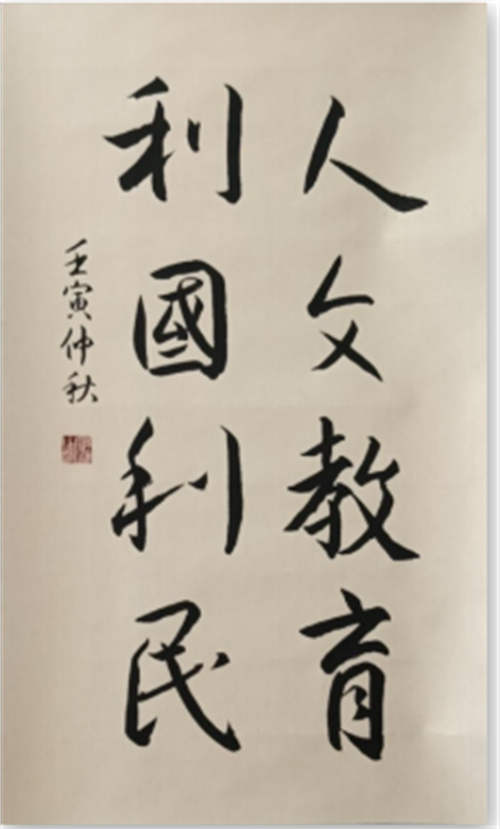 人文教育
利國利民
壬寅仲秋